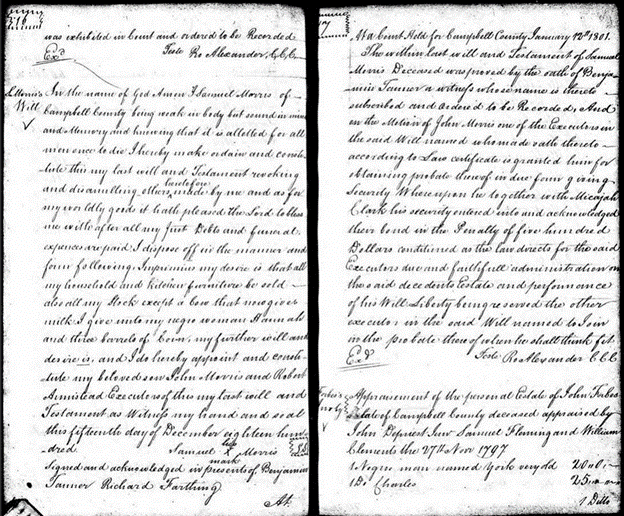 316
was exhibited in Court and ordered to be Recorded
Teste Ro Alexander, C.C.C.
Exd
S. Morris's
Will
In the name of God Amen I Samuel Morris of
Campbell County being weak in body but sound in mind
and Memory and knowing that it is allotted for all
men once to die I hereby make ordain and consti-
tute this my last will and Testament revoking
and disannulling others heretofore made by me and as for
my worldly goods it hath pleased the Lord to bless
me with after all my just Debts and funeral
expences are paid I dispose off in the manner and
form following. Imprimius my desire is that all
my household and kitchen furniture be sold
also all my Stock except a Cow that now gives
milk I give unto my negro woman Hannah
and three barrels of Corn, my further will and
desire is, and I do hereby appoint and consti-
tute my beloved son John Morris and Robert
Armistead Executors of this my last will and
Testament as Witness my hand and seal
this fifteenth day of December eighteen hun-
dred Samuel his X mark Morris
Signed and acknowledged in presents of, Benjamin
Tanner Richard Farthing
At
17
At a Court Held for Campbell County January 12th 1801.
The within last will and Testament of Samuel
Morris Deceased was proved by the oath of Benja-
min Tanner a witness whose name is thereto
subscribed and ordered to be Recorded, And
on the Motion of John Morris one of the Executors in
the said Will named who made oath thereto
according to Law certificate is granted him for
obtaining probate thereof in due form giving
Security Whereupon he together with Micajah
Clark his security entered into and acknowledged
their bond in the Penalty of five hundred
Dollars conditioned as the law directs for the said
Executors due and faithfull administration on
the said decedents Estate and performance
of his Will Liberty being reserved the other
executor in the said Will named to Join
in the probate thereof when he shall think fit
Teste Ro Alexander C C C
Exd
Appraisement of the personal Estate of John Forbes
Estate of Campbell County deceased appraised by
John Depriest Junr Samuel Fleming and William
Clements the 27th Nov 1797
1 Negro man named York very old 20"0"
1 Do Charles 25
1 Ditto